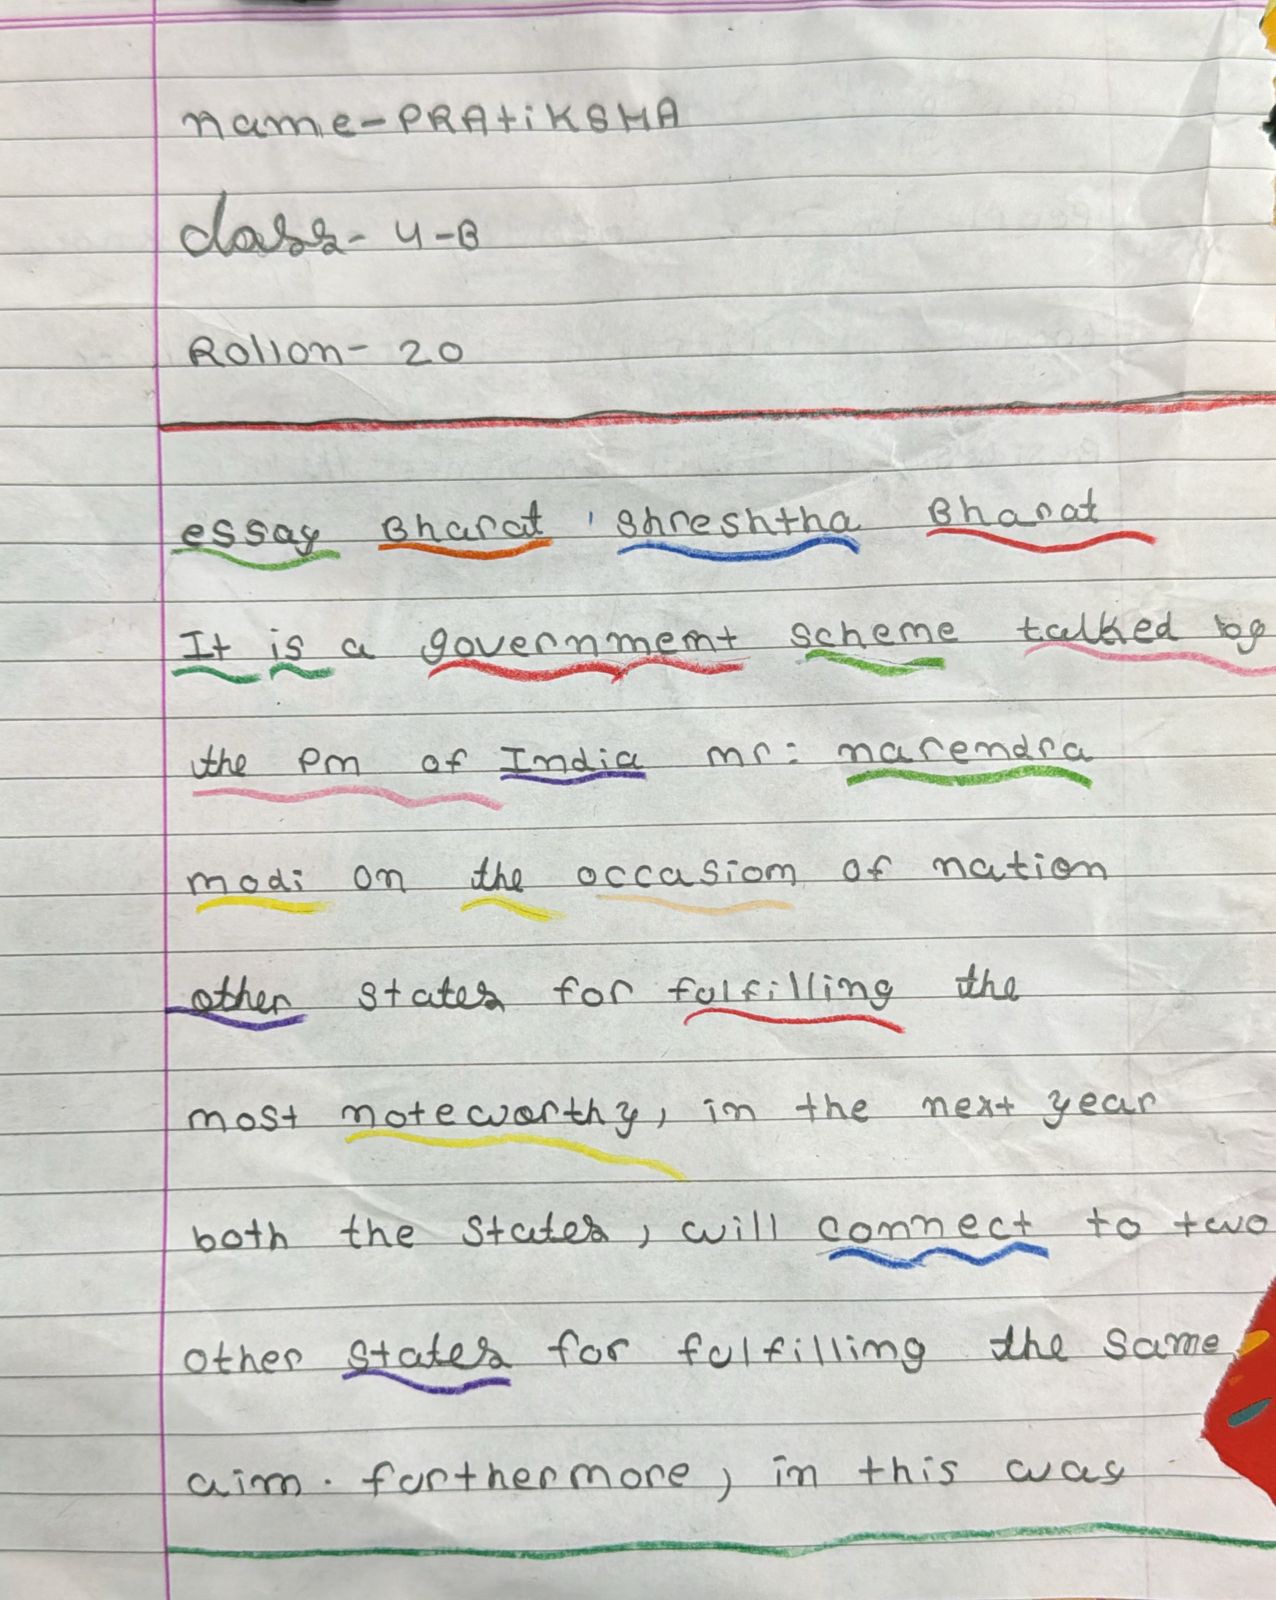 name-PRAtiKSHA
class- 4-B
Rollon- 20
essay Bharat ' Shreshtha Bharat
It is a government scheme talked by
the PM of India mr: narendra
modi on the occasion of nation
other states for fulfilling the
most noteworthy, in the next year
both the states, will connect to two
other states for fulfilling the same
aim. furthermore, in this way